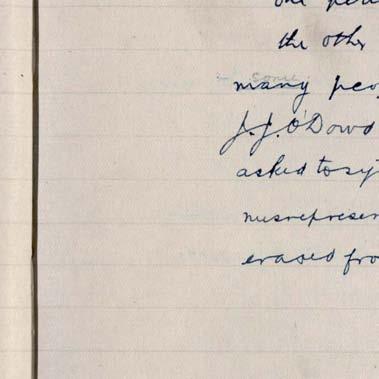 one
the other
some
many peo
J. J. O'Dowd
asked to sig
misrepresen
erased fro